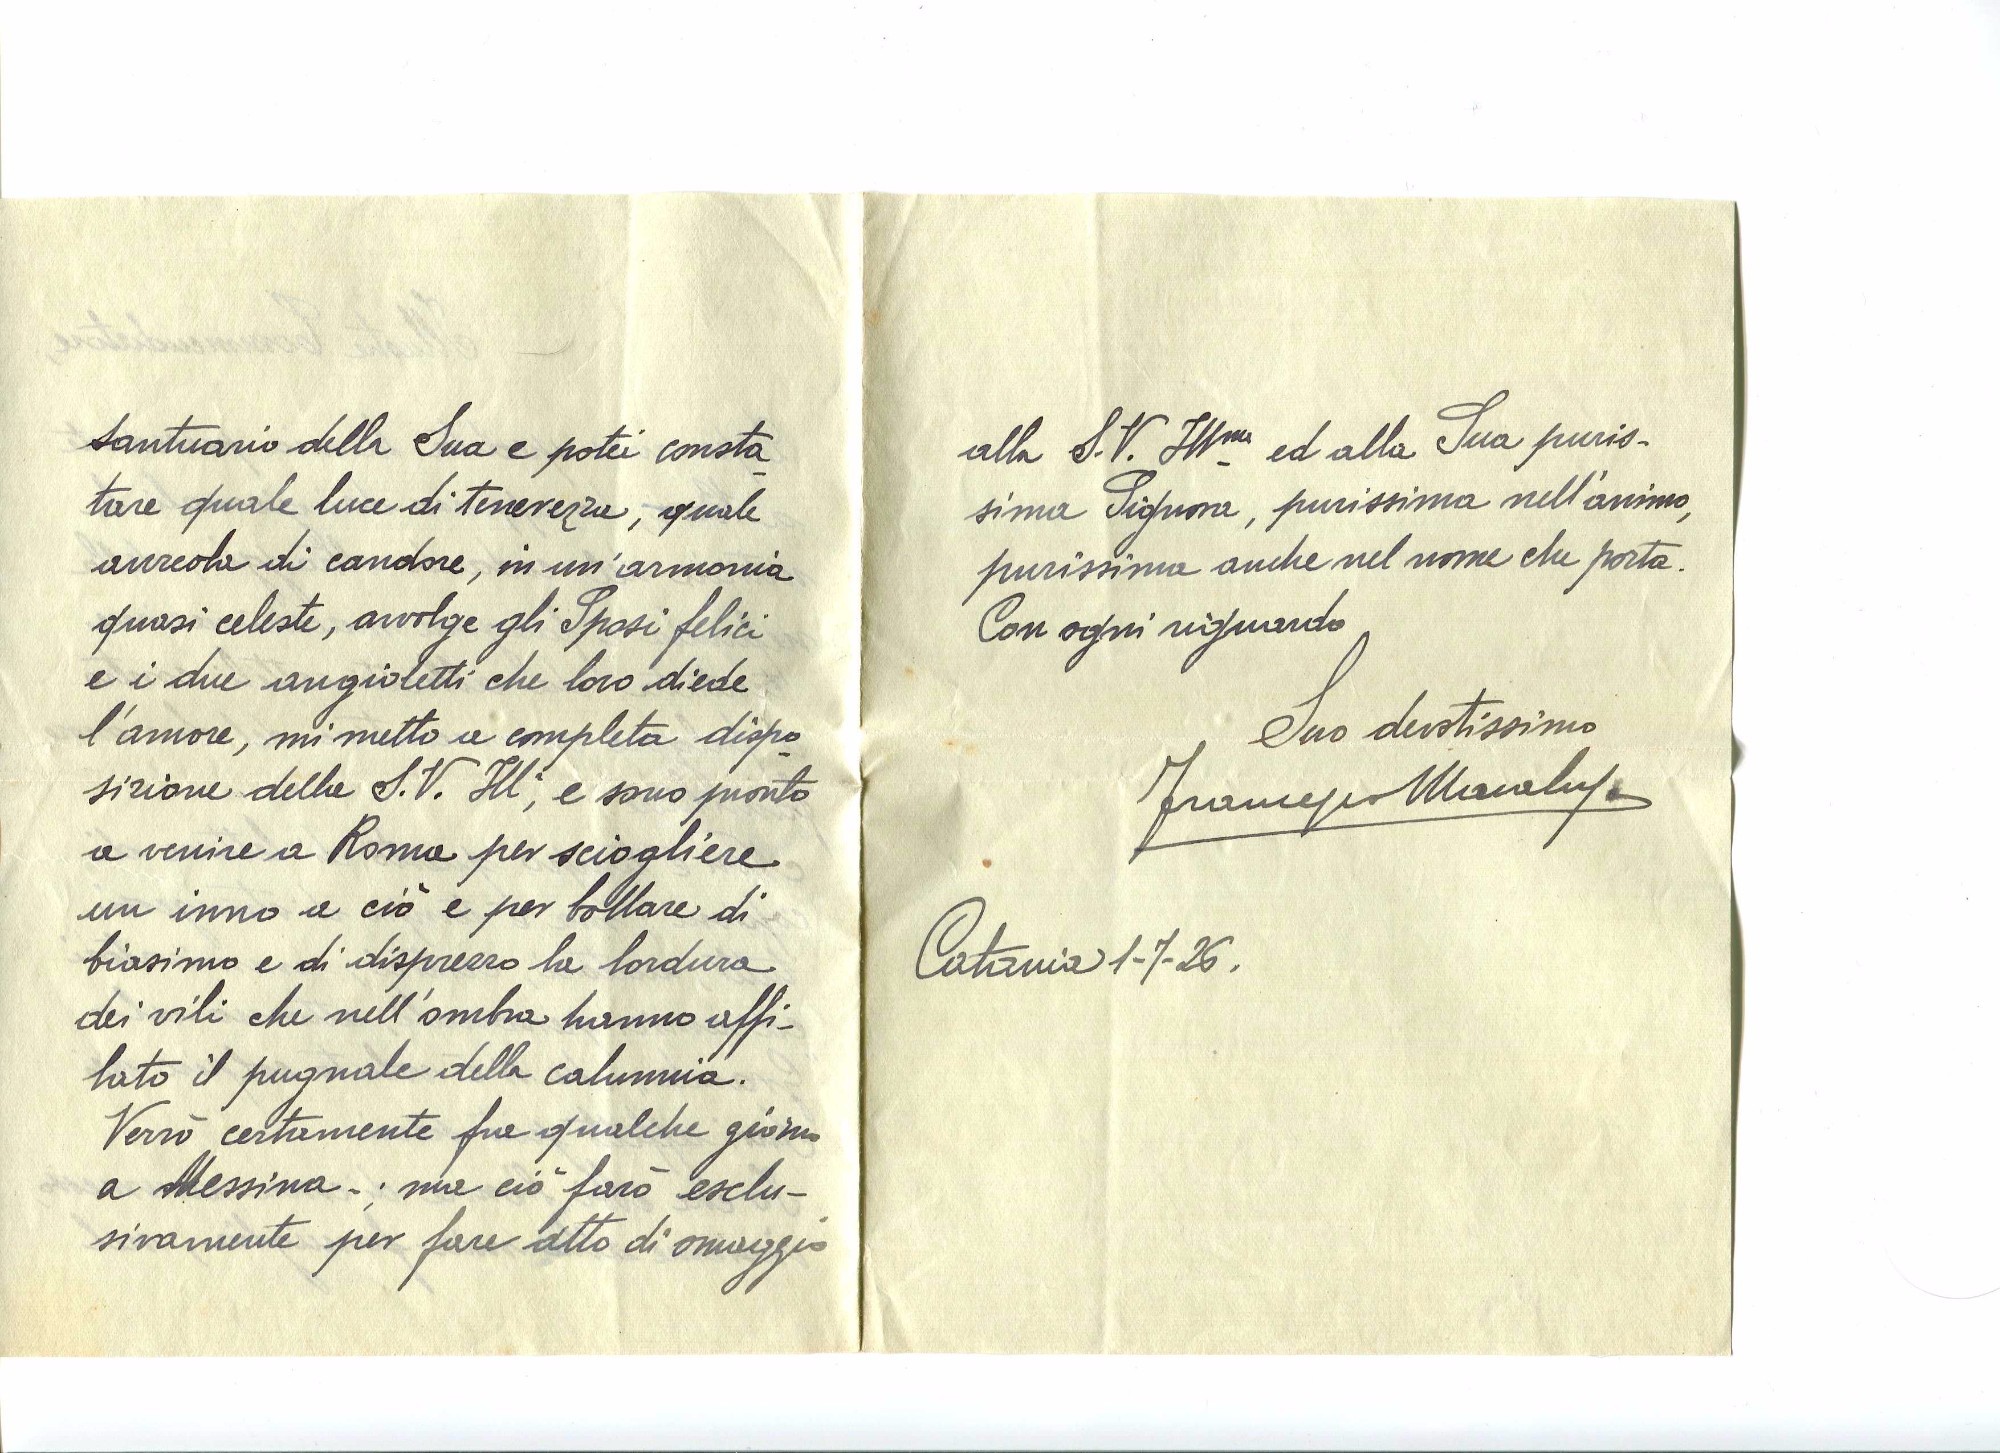 santuario della Sua e potei consta-
tare quale luce di tenerezza, quale
aureola di candore, in un'armonia
quasi celeste, avvolge gli Sposi felici
e i due angioletti che loro diede
l'amore, mi metto a completa dispo-
sizione della S.V. Ill:, e sono pronto
a venire a Roma per sciogliere
un inno a ciò e per bollare di
biasimo e di disprezzo la lordura
dei vili che nell'ombra hanno affi-
lato il pugnale della calunnia.
Verrò certamente fra qualche giorno
a Messina -; ma ciò farò esclu-
sivamente per fare atto di omaggio
alla S.V. Ill<sup>ma</sup> ed alla Sua puris-
sima Signora, purissima nell'animo,
purissima anche nel nome che porta.
Con ogni riguardo
Suo devotissimo
Francesco
Catania 1-7-26.